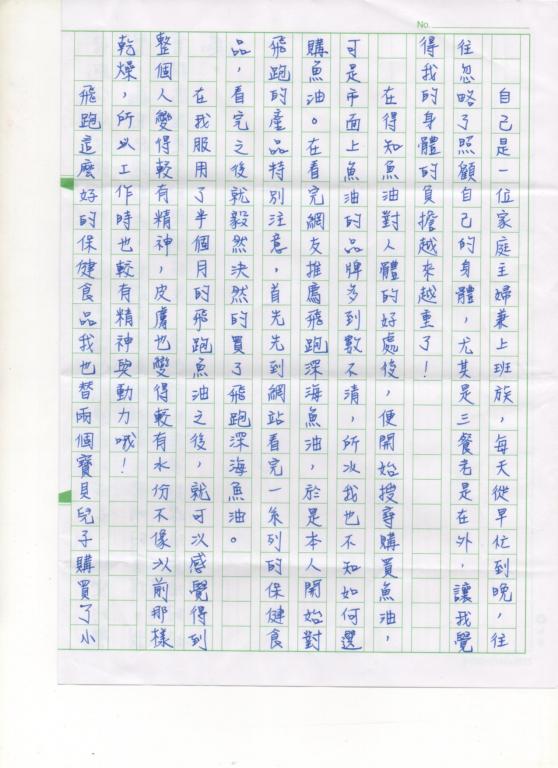 No.
自己是一位家庭主婦兼上班族，每天從早忙到晚，往
往忽略了照顧自己的身體，尤其是三餐老是在外，讓我覺
得我的身體的負擔越來越重了！
在得知魚油對人體的好處後，便開始搜尋購買魚油，
可是市面上魚油的品牌多到數不清，所以我也不知如何選
購魚油。在看完網友推薦飛跑深海魚油，於是本人開始對
飛跑的產品特別注意，首先先到網站看完一系列的保健食
品，看完之後就毅然決然的買了飛跑深海魚油。
在我服用了半個月的飛跑魚油之後，就可以感覺得到
整個人變得較有精神，皮膚也變得較有水份不像以前那樣
乾燥，所以工作時也較有精神與動力哦！
飛跑這麼好的保健食品我也替兩個寶貝兒子購買了小